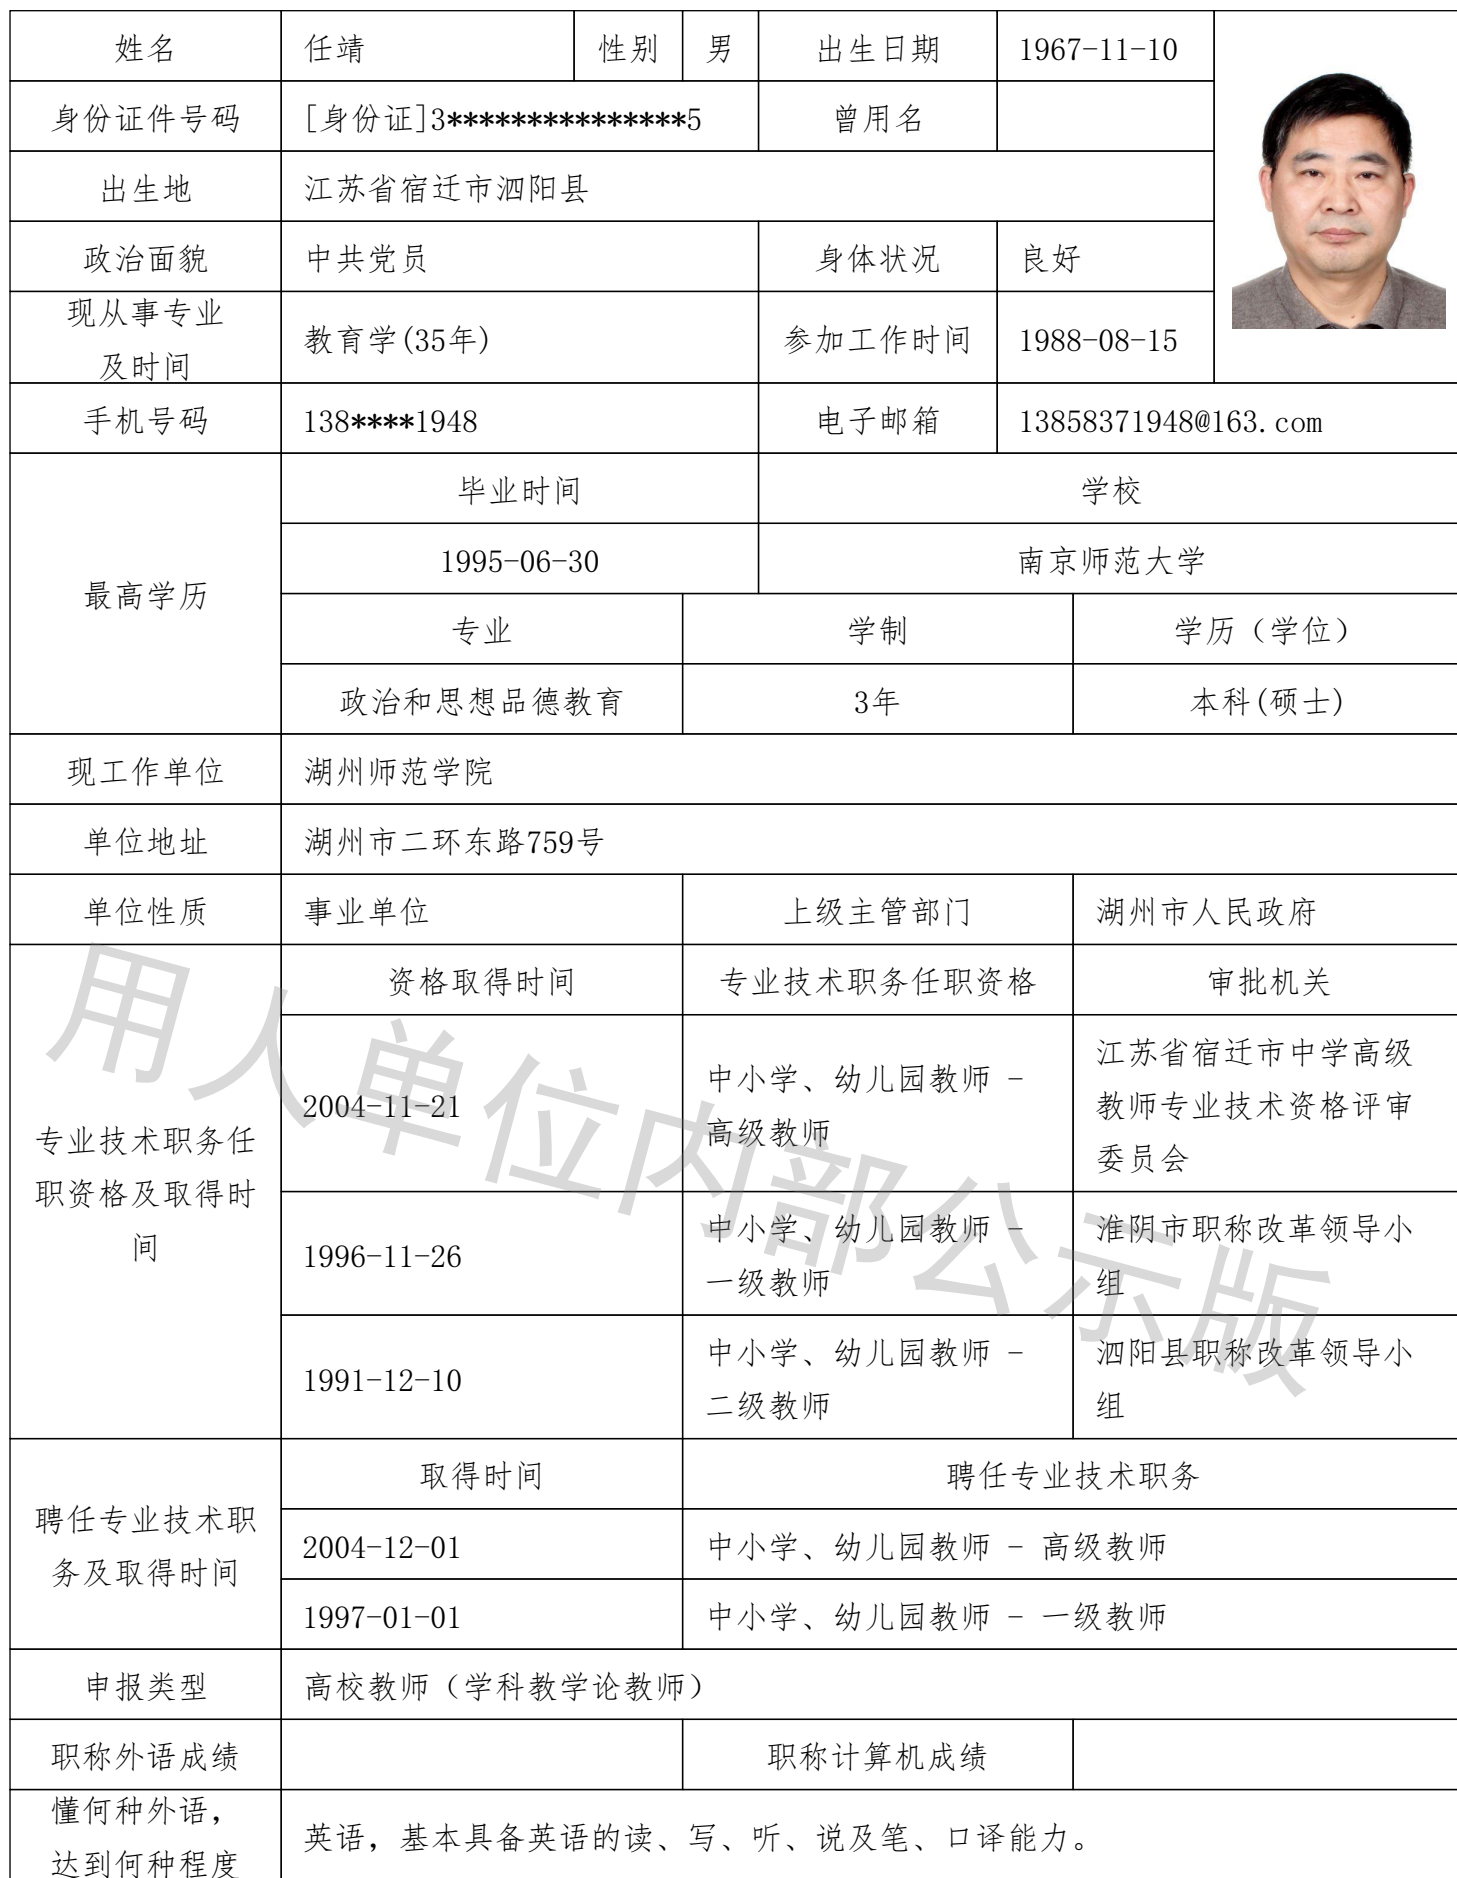 姓名 任靖 性别 男 出生日期 1967-11-10
身份证件号码 [身份证]3***************5 曾用名
出生地 江苏省宿迁市泗阳县
政治面貌 中共党员 身体状况 良好
现从事专业
及时间
教育学(35年) 参加工作时间 1988-08-15
手机号码 138****1948 电子邮箱 13858371948@163.com
最高学历
毕业时间 学校
1995-06-30 南京师范大学
专业 学制 学历（学位）
政治和思想品德教育 3年 本科(硕士)
现工作单位 湖州师范学院
单位地址 湖州市二环东路759号
单位性质 事业单位 上级主管部门 湖州市人民政府
专业技术职务任
职资格及取得时
间
资格取得时间 专业技术职务任职资格 审批机关
2004-11-21
中小学、幼儿园教师 -
高级教师
江苏省宿迁市中学高级
教师专业技术资格评审
委员会
1996-11-26
中小学、幼儿园教师 -
一级教师
淮阴市职称改革领导小
组
1991-12-10
中小学、幼儿园教师 -
二级教师
泗阳县职称改革领导小
组
聘任专业技术职
务及取得时间
取得时间 聘任专业技术职务
2004-12-01 中小学、幼儿园教师 - 高级教师
1997-01-01 中小学、幼儿园教师 - 一级教师
申报类型 高校教师（学科教学论教师）
职称外语成绩 职称计算机成绩
懂何种外语，
达到何种程度
英语，基本具备英语的读、写、听、说及笔、口译能力。
用人单位内部公示版